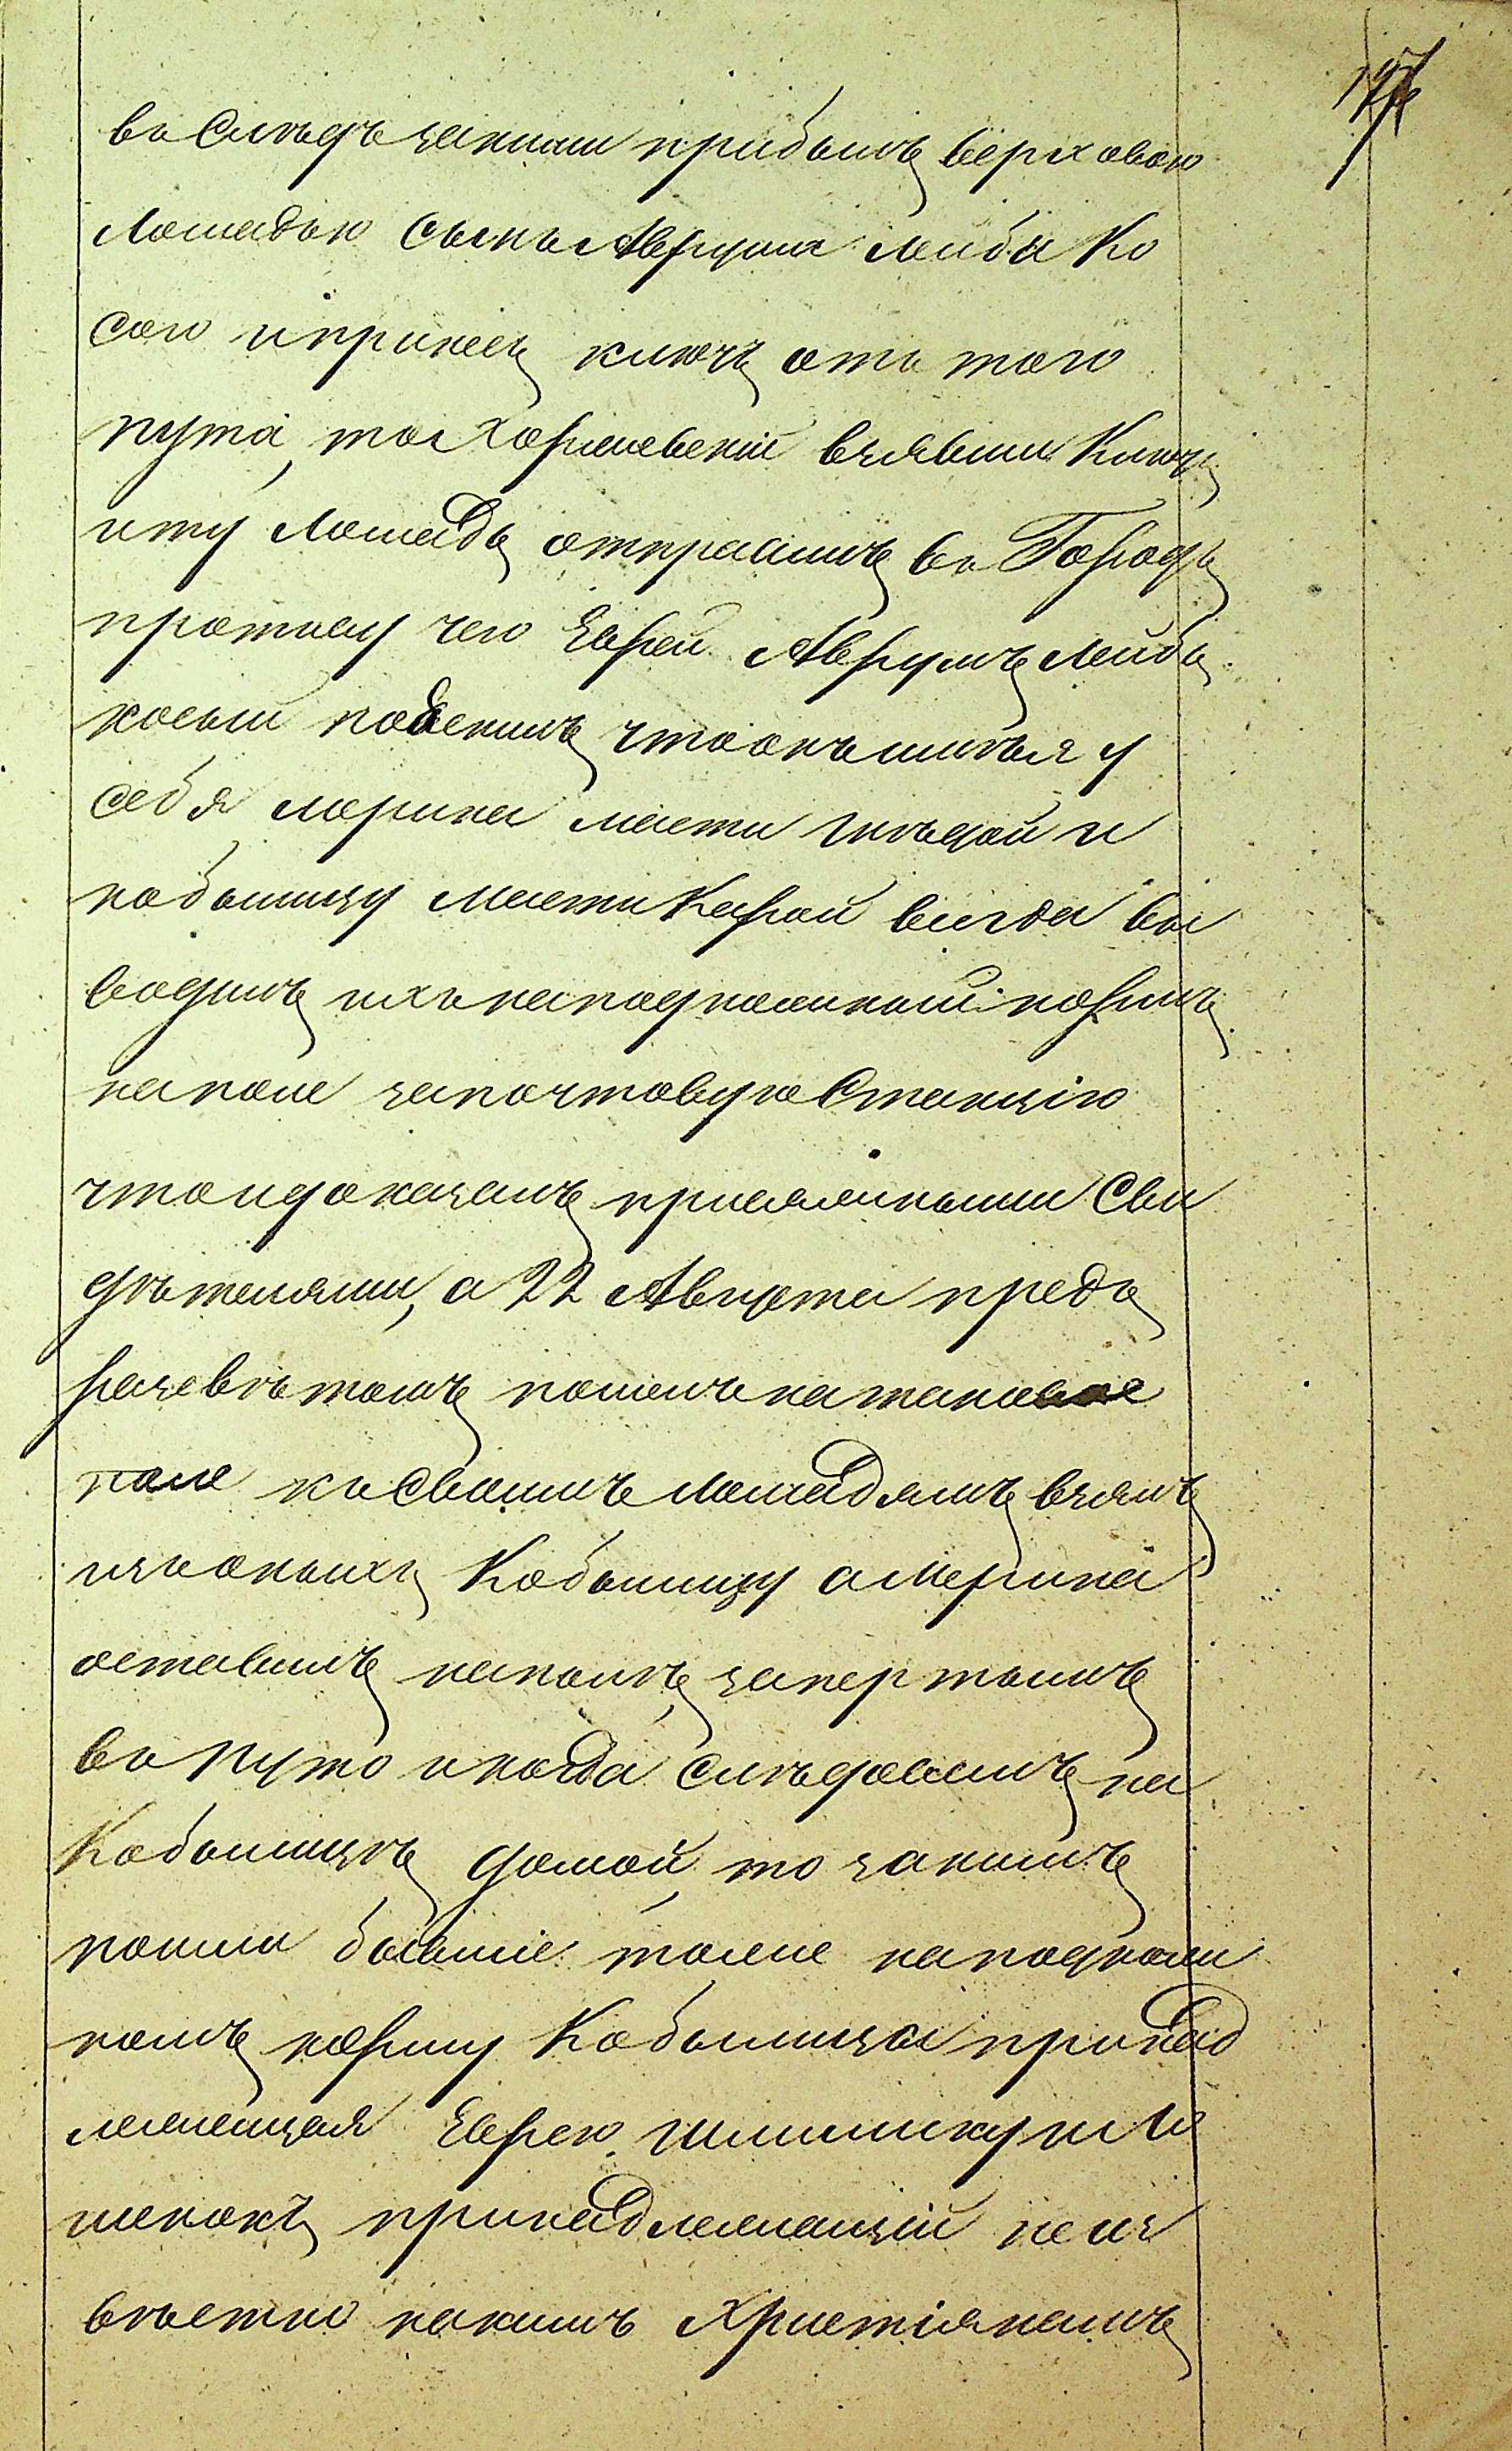 въ Следъ заними прибылъ верховою
Лошадью Сынъ Аврума Лейба Ко
сого ипринесъ ключъ отъ того
пута, то Хоржевскій взявши Ключъ
иту Лошадь отправилъ въ Городъ
противу чего Еврей Аврумъ Лейба
косый пояснилъ чтоонъ имѣя у
себя мерина масти гнѣдой и
кобылицу масти Карой всигда вы
водилъ ихъ наподножный кормъ
наполе започтовую Станцію
что идоказалъ присяжными Сви
дѣтелями, а 22 Августа предъ
разсвѣтомъ пошелъ на таковое
поле къ Своимъ Лошадямъ взялъ
изъ оныхъ Кобылицу а Мерина
оставилъ наполѣ, запертымъ
въ путо и когда Слѣдовалъ на
Кобылицѣ домой, то занимъ
пошли бывшіе тамже на поднож
номъ корму Кобылица принад
лежащая Еврею Шлимку и Ло
шакъ принадлежащій неиз
вѣстно какимъ Христіянамъ